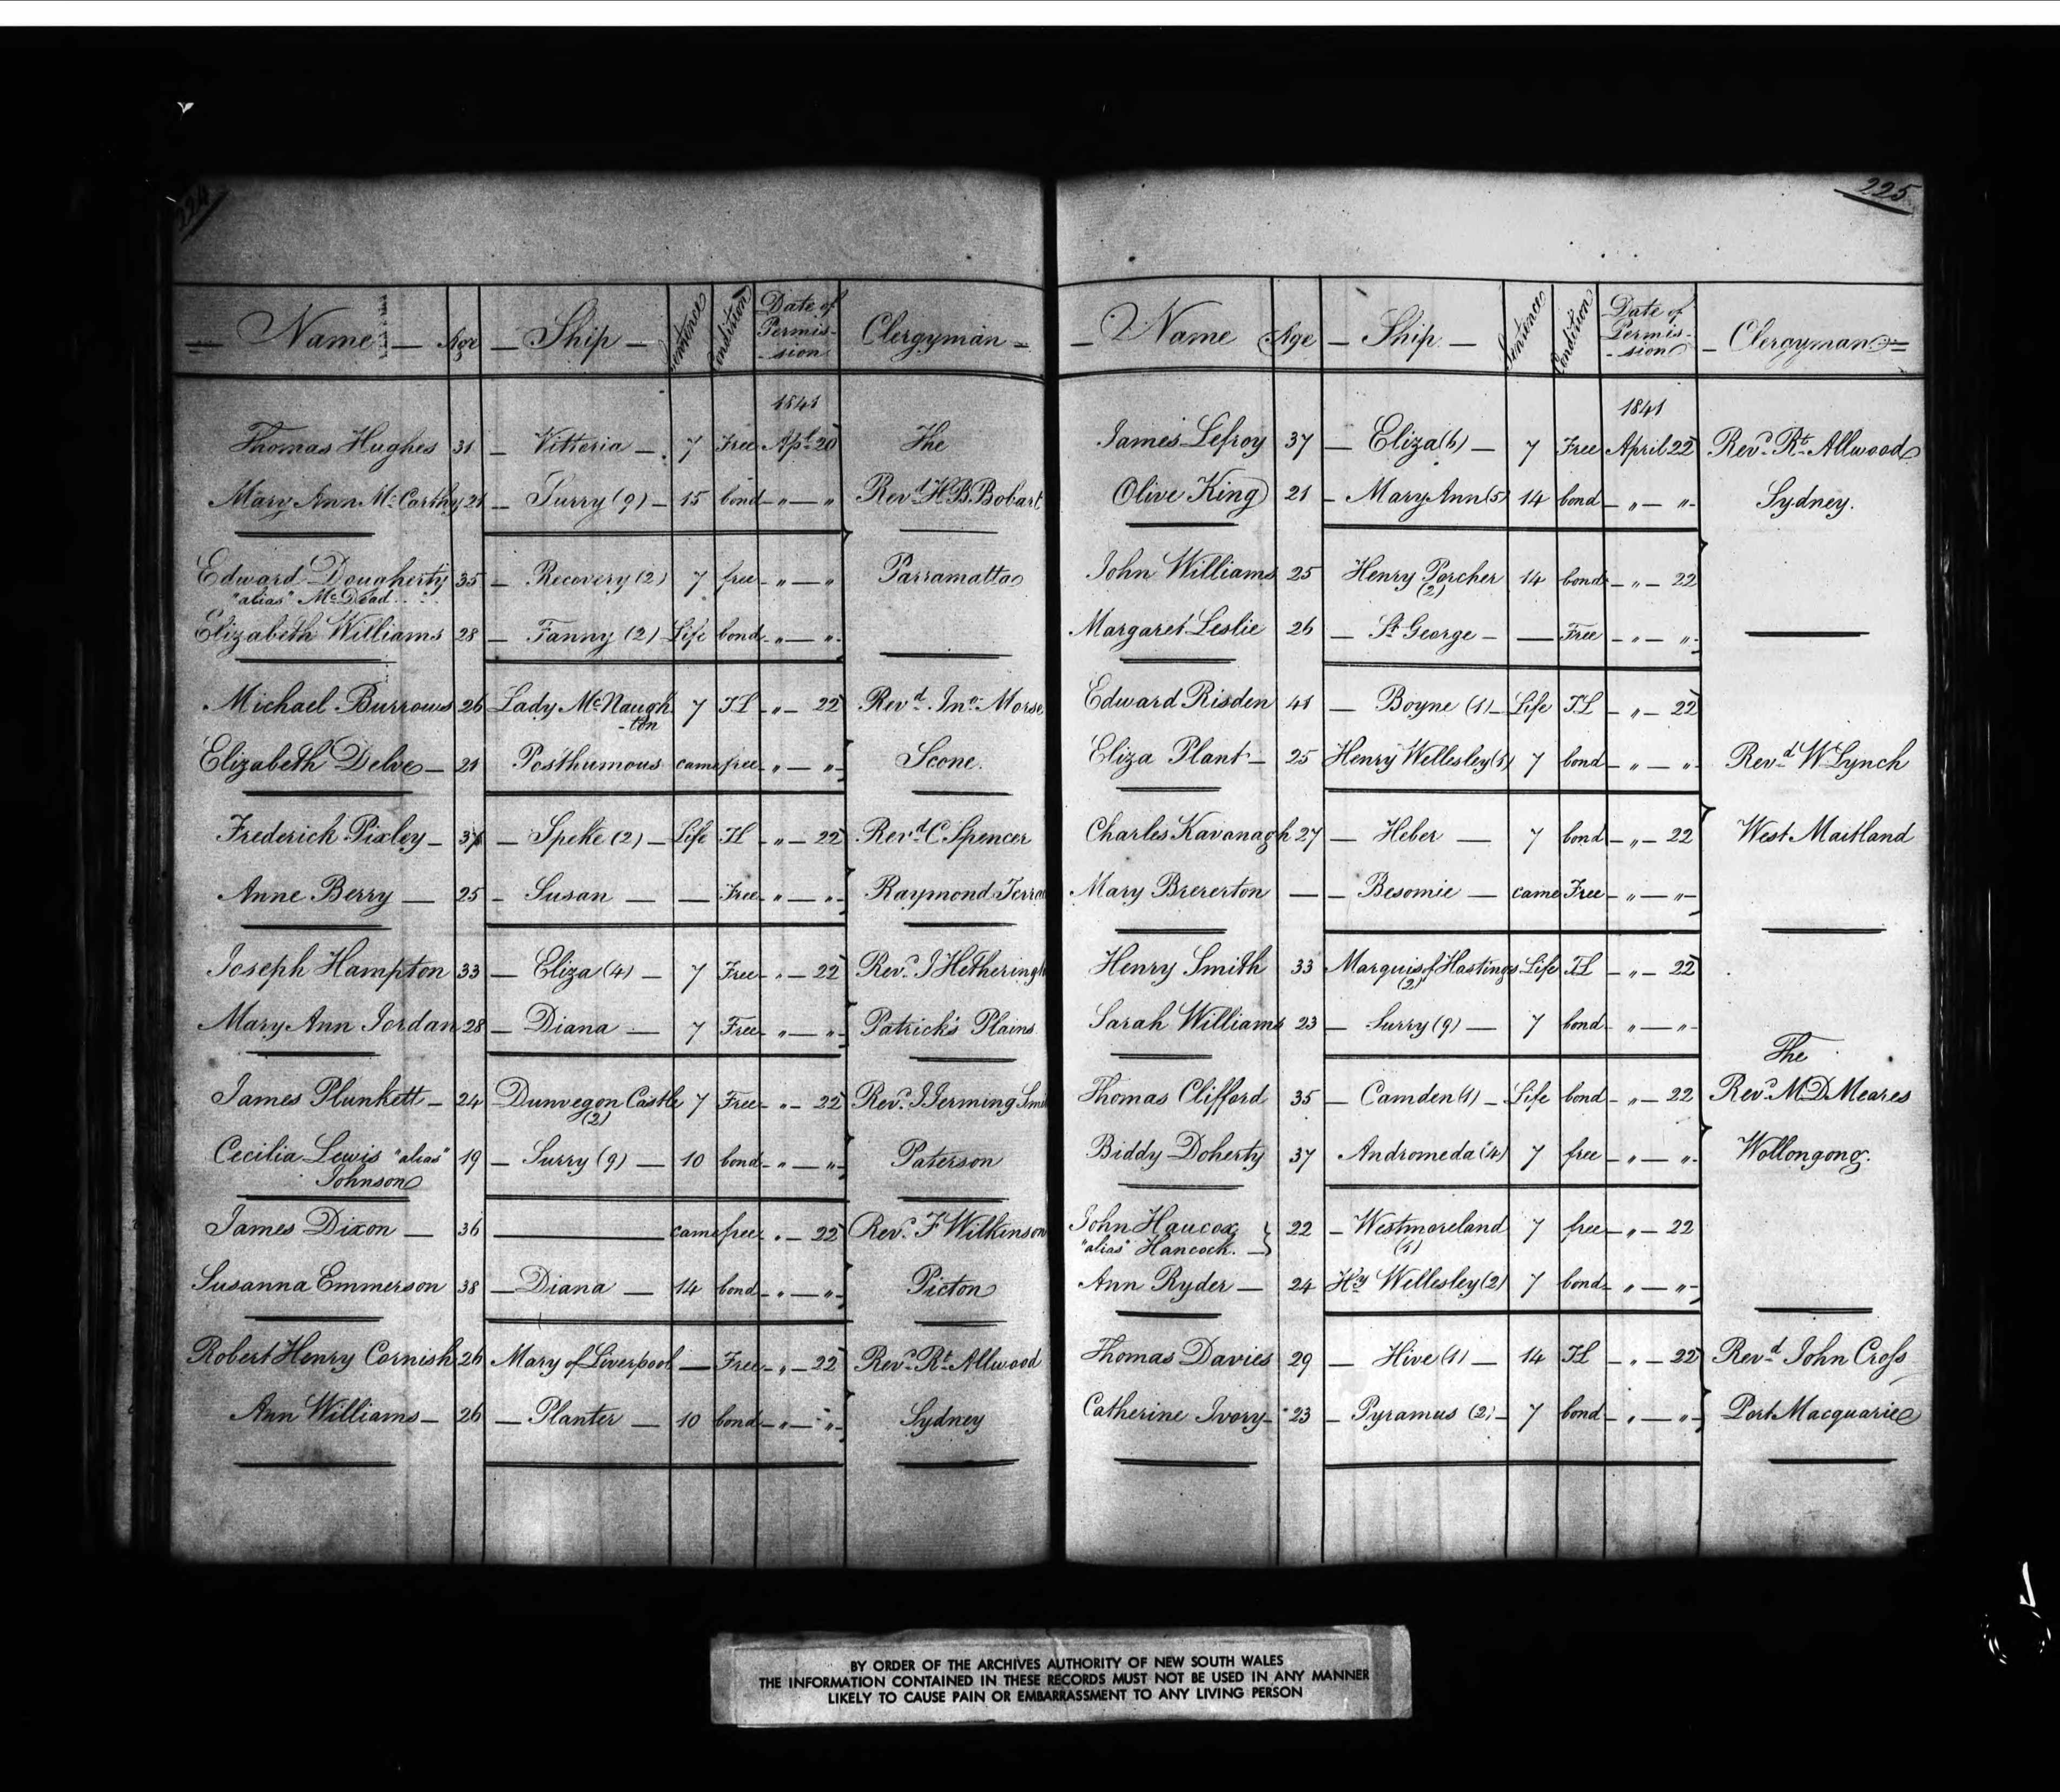 224
Name Age Ship Sentence Condition Date of Permis-sion Clergyman
1841
Thomas Hughes 31 Vittoria 7 Free Apl 20 The
Mary Ann McCarthy 21 Surry (9) 15 bond " " Revd H.B. Bobart
Edward Dougherty 35 Recovery (2) 7 free " " Parramatta
"alias" McDead
Elizabeth Williams 28 Fanny (2) Life bond " "
Michael Burrows 26 Lady McNaugh-ton 7 TL " 22 Revd Jno Morse
Elizabeth Delve 21 Posthumous came free " " Scone.
Frederick Pixley Speke (2) Life TL " 22 Revd C Spencer
Anne Berry 25 Susan — Free " " Raymond Terrace
Joseph Hampton 33 Eliza (4) 7 Free " 22 Revd J Hetherington
Mary Ann Jordan 28 Diana 7 Free " " Patrick's Plains
James Plunkett 24 Dunvegon Castle (2) 7 Free " 22 Revd J Jerming Smith
Cecilia Lewis "alias" 19 Surry (9) 10 bond " " Paterson
Johnson
James Dixon 36 — came free " 22 Revd F Wilkinson
Susanna Emmerson 38 Diana 14 bond " " Picton
Robert Henry Cornish 26 Mary of Liverpool — Free " 22 Revd Rt Allwood
Ann Williams 26 Planter 10 bond " " Sydney
225
Name Age Ship Sentence Condition Date of Permis-sion Clergyman
1841
James Lefroy 37 Eliza (6) 7 Free April 22 Revd Rt Allwood
Olive King 21 Mary Ann (5) 14 bond " " Sydney.
John Williams 25 Henry Porcher (2) 14 bond " 22
Margaret Leslie 26 St George — Free " "
Edward Risden 41 Boyne (1) Life TL " 22
Eliza Plant 25 Henry Wellesley (1) 7 bond " " Revd W Lynch
Charles Kavanagh 27 Heber 7 bond " 22 West Maitland
Mary Brererton — Besomie came Free " "
Henry Smith 33 Marquis of Hastings (2) Life TL " 22
Sarah Williams 23 Surry (9) 7 bond " "
The
Thomas Clifford 35 Camden (1) Life bond " 22 Revd M D Meares
Biddy Doherty 37 Andromeda (4) 7 free " " Wollongong.
John Haucox 22 Westmoreland (1) 7 free " 22
"alias" Hancock.
Ann Ryder 24 Hy Wellesley (2) 7 bond " "
Thomas Davies 29 Hive (1) 14 TL " 22 Revd John Cross
Catherine Ivory 23 Pyramus (2) 7 bond " " Port Macquarie
BY ORDER OF THE ARCHIVES AUTHORITY OF NEW SOUTH WALES
THE INFORMATION CONTAINED IN THESE RECORDS MUST NOT BE USED IN ANY MANNER
LIKELY TO CAUSE PAIN OR EMBARRASSMENT TO ANY LIVING PERSON